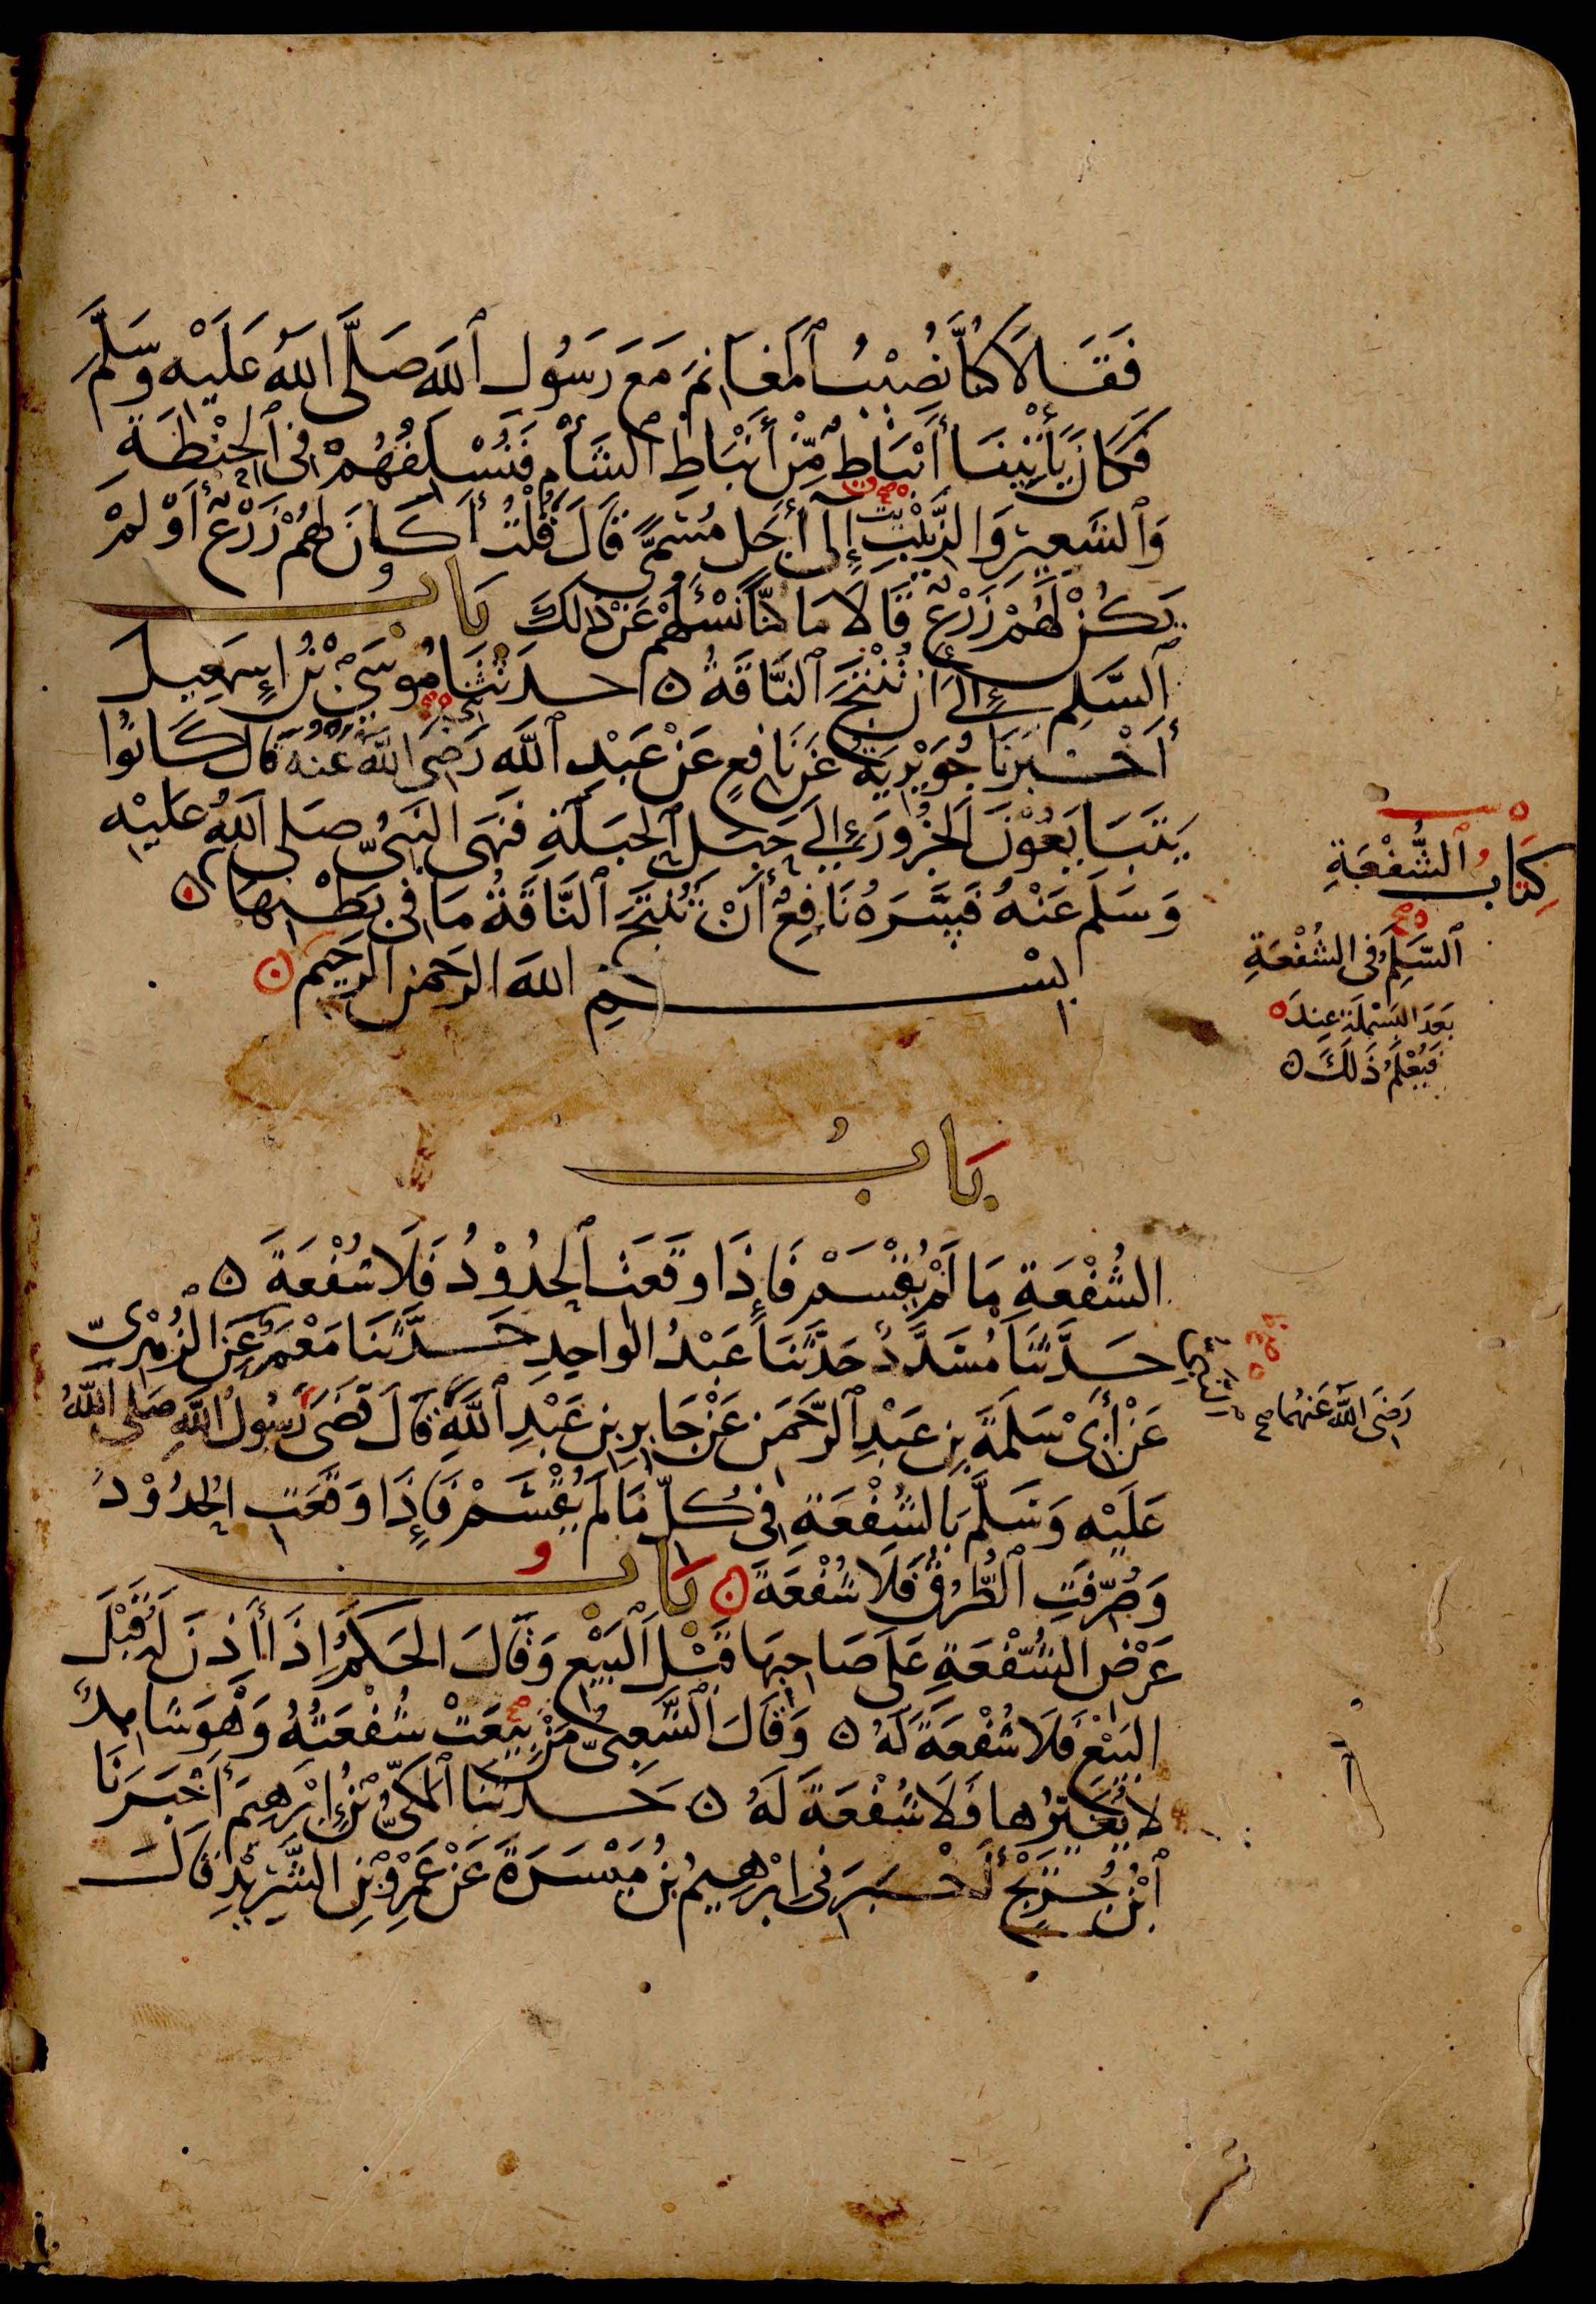 فَقَالَا كُنَّا نُصِيْبُ ٱلْمَغَانِمَ مَعَ رَسُولِ ٱللَّهِ صَلَّى اللَّهُ عَلَيْهِ وَسَلَّمَ
فَكَانَ يَأْتِينَا أَنْبَاطٌ مِّنْ أَنْبَاطِ ٱلشَّأْمِ فَنُسْلِفُهُمْ فِى ٱلْحِنْطَةِ
وَٱلشَّعِيرِ وَالزَّيْتِ إِلَى أَجَلٍ مُسَمًّى قَالَ قُلْتُ أَكَانَ لَهُمْ زَرْعٌ أَوْ لَمْ
يَكُنْ لَهُمْ زَرْعٌ قَالَا مَا كُنَّا نَسْئَلُهُمْ عَنْ ذَلِكَ بَابُ
ٱلسَّلَمِ إِلَى أَنْ تُنْتَجَ ٱلنَّاقَةُ ۞ حدثنا مُوْسَى بْنُ إِسْمَعِيلَ
أَخْبَرَنَا جُوَيْرِيَةُ عَنْ نَافِعٍ عَنْ عَبْدِ ٱللَّهِ رَضِىَ اللَّهُ عَنْهُ قَالَ كَانُوا
يَتَبَايَعُوْنَ ٱلْجَزُورَ إِلَى حَبَلِ ٱلْحَبَلَةِ فَنَهَى النَّبِىُّ صَلَّى اللَّهُ عَلَيْهِ
وَسَلَّمَ عَنْهُ فَسَّرَهُ نَافِعٌ أَنْ تُنْتَجَ ٱلنَّاقَةُ مَا فِى بَطْنِهَا ۞
بِسْمِ اللَّهِ الرَّحْمَنِ الرَّحِيمِ ۞
كِتَابُ ٱلشُّفْعَةِ
ٱلسَّلَمُ فِى الشُّفْعَةِ
بَعْدَ البَسْمَلَةِ عِنْدَ ه
فَيُعْلَمُ ذَلِكَ ۞
بَابُ
الشُّفْعَةِ مَا لَمْ يُقْسَمْ فَإِذَا وَقَعَتِ ٱلْحُدُوْدُ فَلَا شُفْعَةَ ۞
حَدَّثَنَا مُسَدَّدٌ حَدَّثَنَا عَبْدُ الوَاحِدِ حَدَّثَنَا مَعْمَرٌ عَنِ الزُّهْرِىِّ
عَنْ أَبِى سَلَمَةَ بْنِ عَبْدِ ٱلرَّحْمَنِ عَنْ جَابِرِ بْنِ عَبْدِ ٱللَّهِ قَالَ قَضَى رَسُولُ اللَّهِ صَلَّى اللَّهُ
رَضِىَ اللَّهُ عَنْهُمَا صح
عَلَيْهِ وَسَلَّمَ بِالشُّفْعَةِ فِى كُلِّ مَا لَمْ يُقْسَمْ فَإِذَا وَقَعَتِ الْحُدُوْدُ
وَصُرِّفَتِ ٱلطُّرُقُ فَلَا شُفْعَةَ ۞ بَابُ
عَرْضِ الشُّفْعَةِ عَلَى صَاحِبِهَا قَبْلَ ٱلْبَيْعِ وَقَالَ الْحَكَمُ إِذَا أَذِنَ لَهُ قَبْلَ
البَيْعِ فَلَا شُفْعَةَ لَهُ ۞ وَقَالَ ٱلشَّعْبِىُّ مَنْ بِيْعَتْ شُفْعَتُهُ وَهْوَ شَاهِدٌ
لَا يُغَيِّرُهَا فَلَا شُفْعَةَ لَهُ ۞ حَدَّثَنَا ٱلْمَكِّىُّ بْنُ إِبْرَهِيمَ أَخْبَرَنَا
ٱبْنُ جُرَيْجٍ أَخْبَرَنِى إِبْرَهِيمُ بْنُ مَيْسَرَةَ عَنْ عَمْرِو بْنِ الشَّرِيْدِ قَالَ